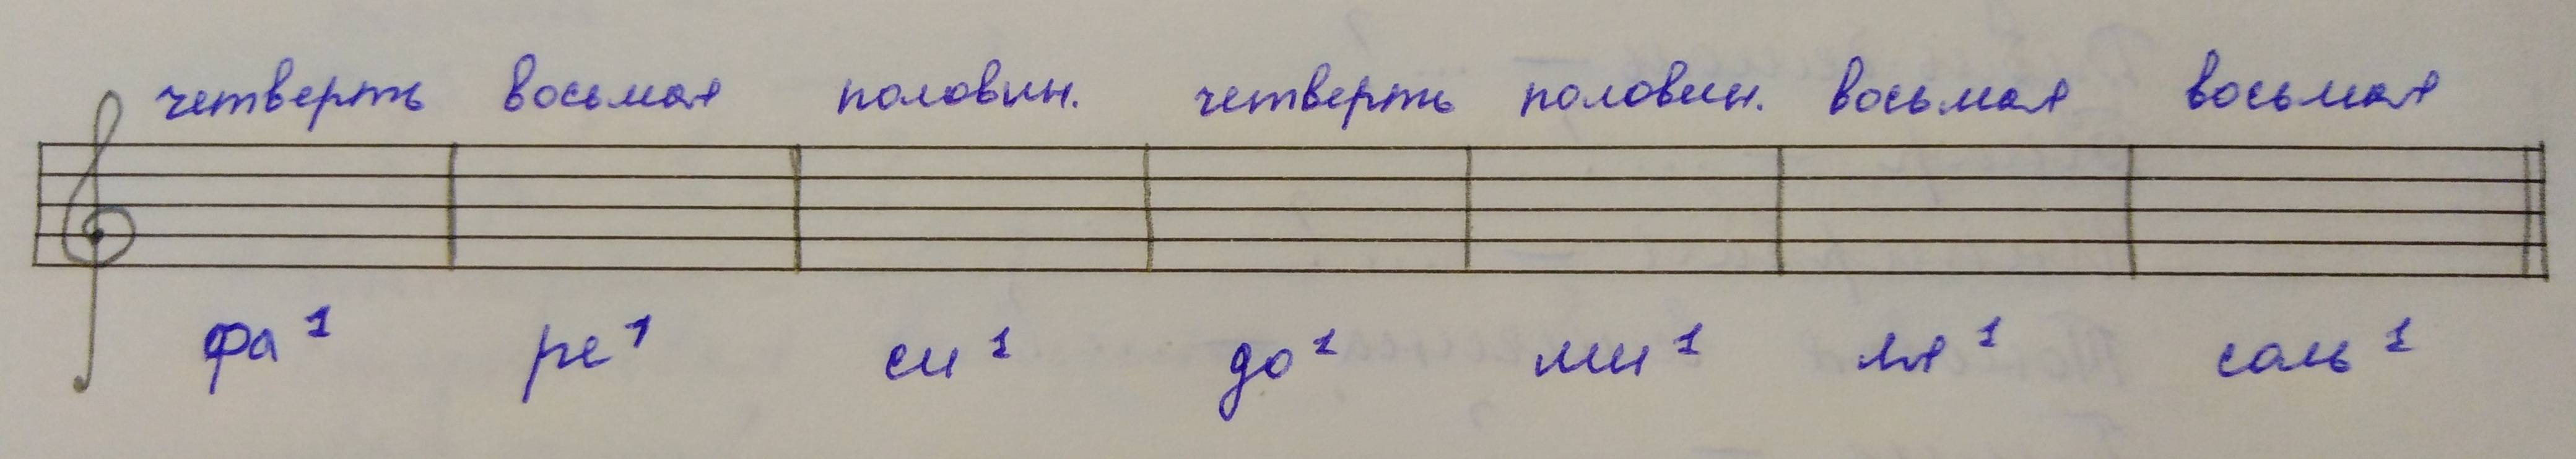 четверть восьмая половин. четверть половин. восьмая восьмая
фа 1 ре 1 си 1 до 1 ми 1 ля 1 соль 1